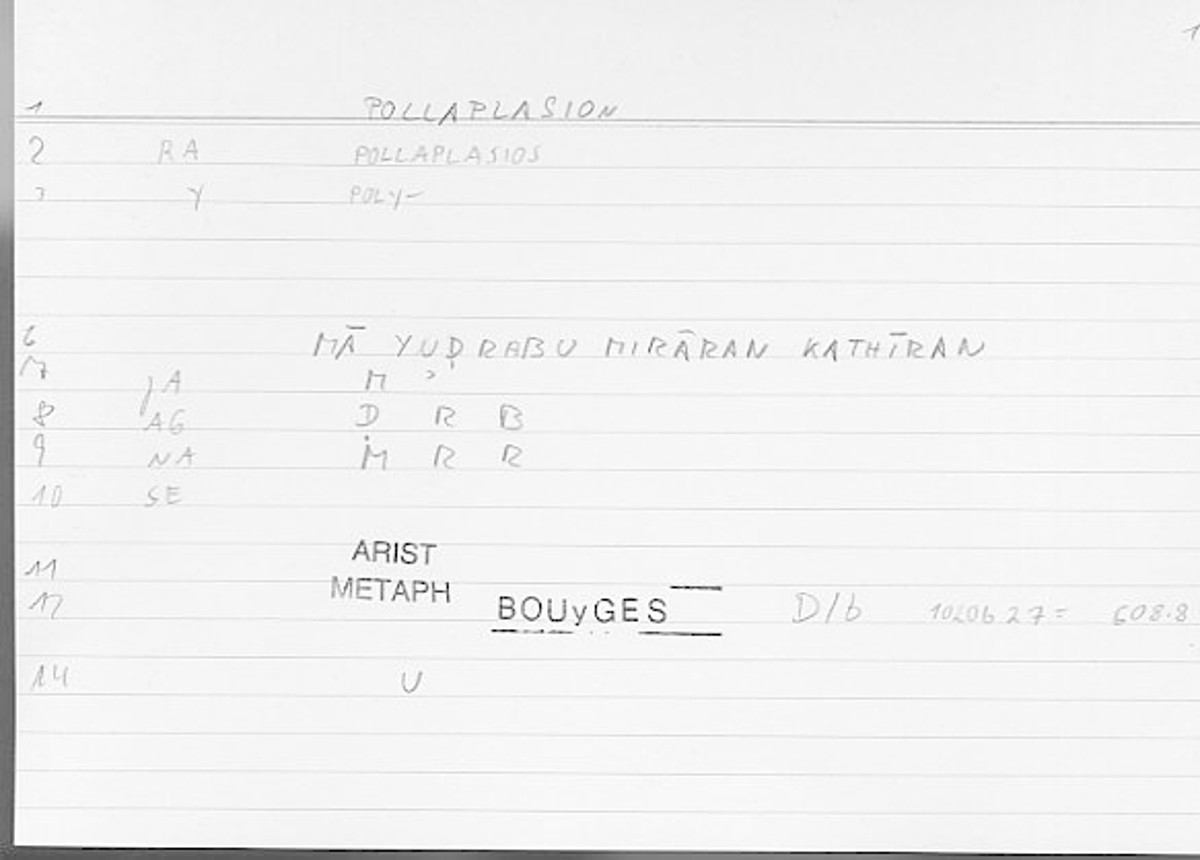 1
1 POLLAPLASION
2 RA POLLAPLASIOS
3 Y POLY-
6 MĀ YUḌRABU MIRĀRAN KATHĪRAN
7 JA M ʾ
8 AG Ḍ R B
9 NA M R R
10 SE
11 ARIST
METAPH
12 BOUyGES D/b 1020b 27 = 608.8
14 U